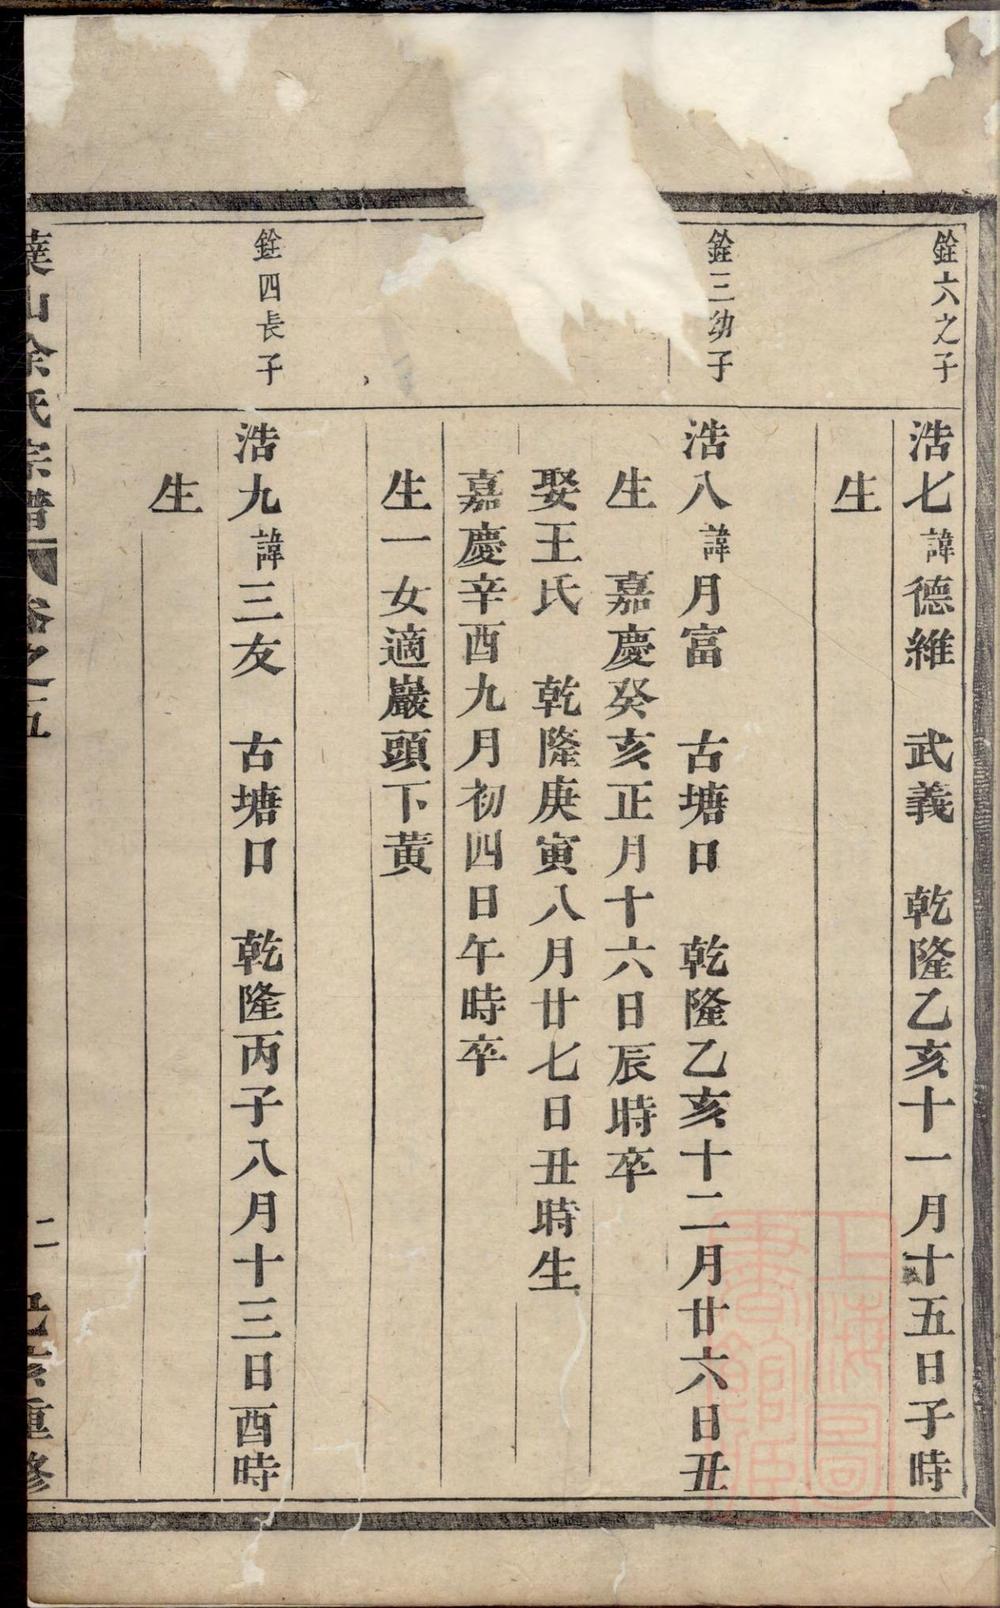 銓六之子
浩七諱德維 武義 乾隆乙亥十一月十五日子時
生
銓三幼子
浩八諱月富 古塘口 乾隆乙亥十二月廿六日丑
生 嘉慶癸亥正月十六日辰時卒
娶王氏 乾隆庚寅八月廿七日丑時生
嘉慶辛酉九月初四日午時卒
生一女適巖頭下黃
銓四長子
浩九諱三友 古塘口 乾隆丙子八月十三日酉時
生
山余氏宗譜 卷之五 二 重修
上海圖書館藏